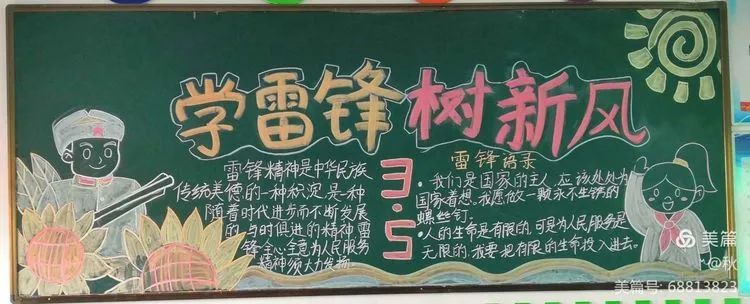 学雷锋 树新风
雷锋精神是中华民族
传统美德的一种积沉是一种
随着时代进步而不断发展
的与时俱进的精神雷
锋全心全意为人民服务
精神须大力发扬
3.5
雷锋语录
·我们是国家的主人应该处处为
国家着想。我愿做一颗永不生锈的
螺丝钉。
·人的生命是有限的,可是为人民服务是
无限的,我要把有限的生命投入进去。
美篇
@秋
美篇号: 68813823